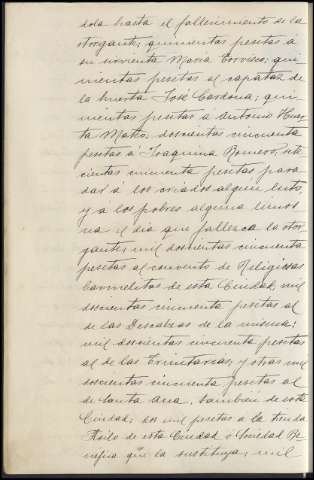 dola hasta el fallecimiento de la
otorgante; quinientas pesetas á
su sirvienta Maria Corvesos; qui
nientas pesetas al capataz de
la huerta José Cardona; qui-
nientas pesetas á Antonio Huer
ta Mateo; doscientas cincuenta
pesetas á Joaquina Romero; sete
cientas cincuenta pesetas para
dar á los criados algun luto,
y á los pobres alguna limos
na el dia que fallezca la otor
gante; mil doscientas cincuenta
pesetas al convento de Religiosas
Carmelitas de esta Ciudad; mil
doscientas cincuenta pesetas al
de las Descalzas de la misma;
mil doscientas cincuenta pesetas
al de las Trinitarias; y otras mil
doscientas cincuenta pesetas al
de Santa Ana, tambien de esta
Ciudad; dos mil pesetas a la tienda
Asilo de esta Ciudad ó Sociedad Be
nefica que la sustituya; mil